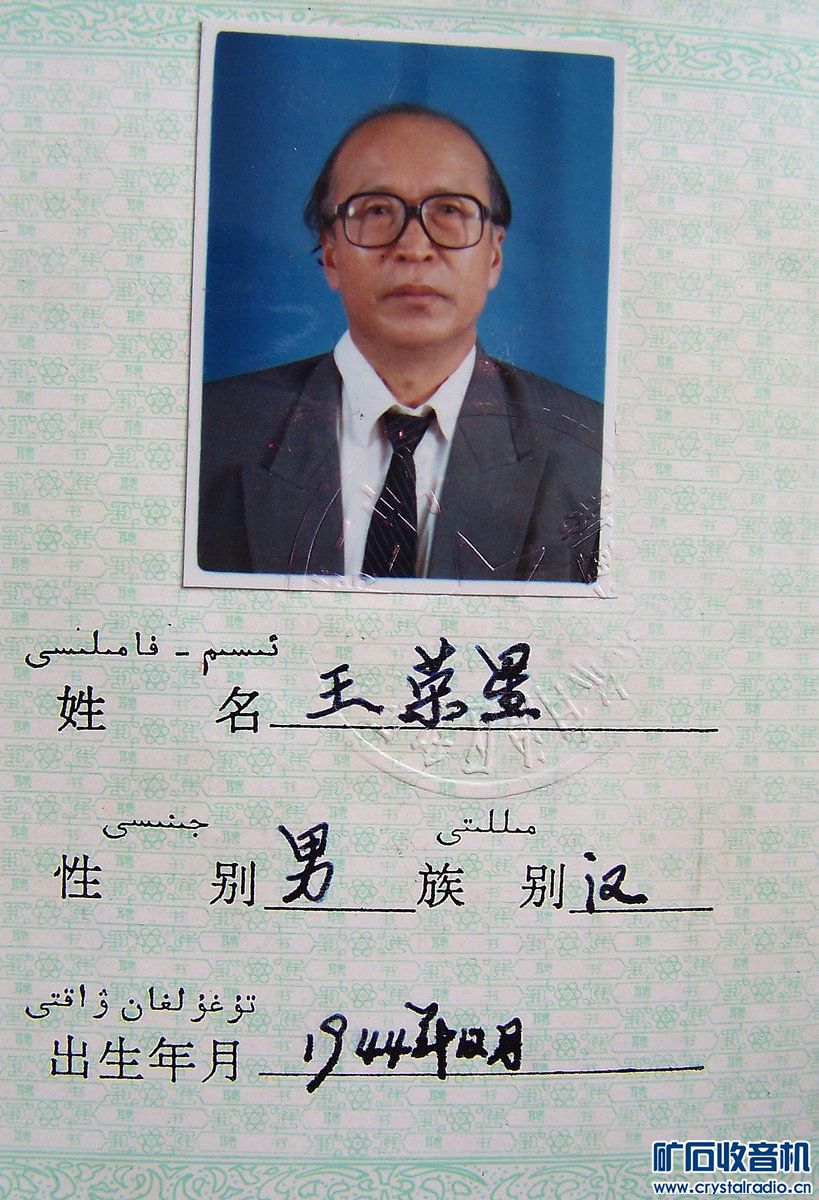 ئىسىم - فامىلىسى
姓 名 王荣星
جىنىسى مىللىتى
性 别 男 族 别 汉
تۇغۇلغان ۋاقتى
出生年月 1944年12月
矿石收音机
www.crystalradio.cn